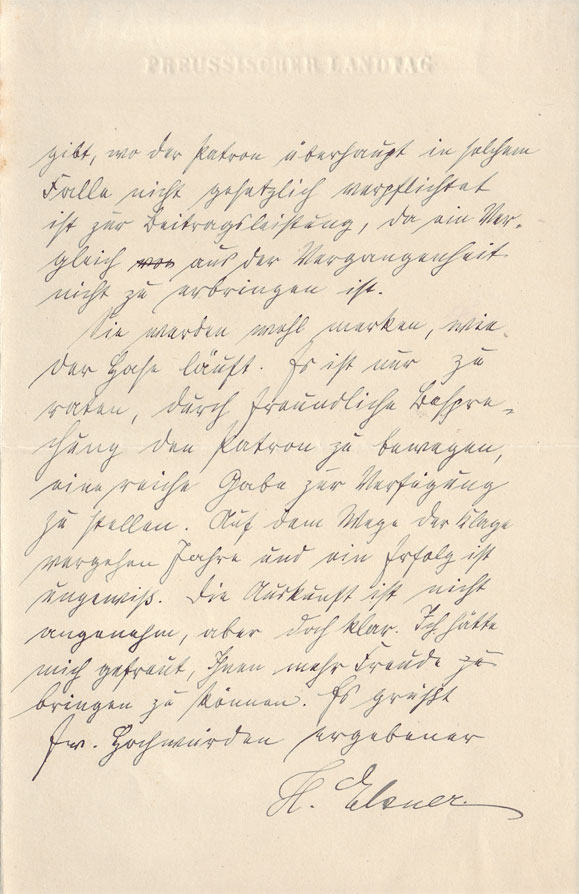 PREUSSISCHER LANDTAG
gibt, wo der Patron überhaupt in solchem
Falle nicht gesetzlich verpflichtet
ist zur Beitragsleistung, da ein Ver-
gleich von aus der Vergangenheit
nicht zu erbringen ist.
Sie werden wohl merken, wie
der Hase läuft. Es ist nur zu
raten, durch freundliche Bespre-
chung den Patron zu bewegen,
eine reiche Gabe zur Verfügung
zu stellen. Auf dem Wege der Klage
vergehen Jahre und ein Erfolg ist
ungewiß. Die Auskunft ist nicht
angenehm, aber doch klar. Ich hätte
mich gefreut, Ihnen mehr Freude zu
bringen zu können. Es grüßt
Ew. Hochwürden ergebener
H. Elsner